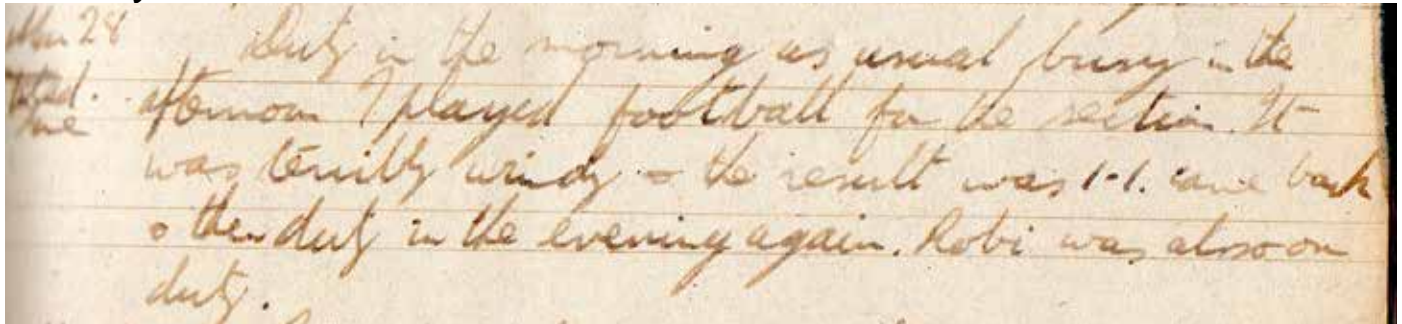 28
Duty in the morning as usual, busy in the
afternoon I played football for the section. It
was terribly windy & the result was 1-1. came back
& then duty in the evening again. Robi was also on
duty.